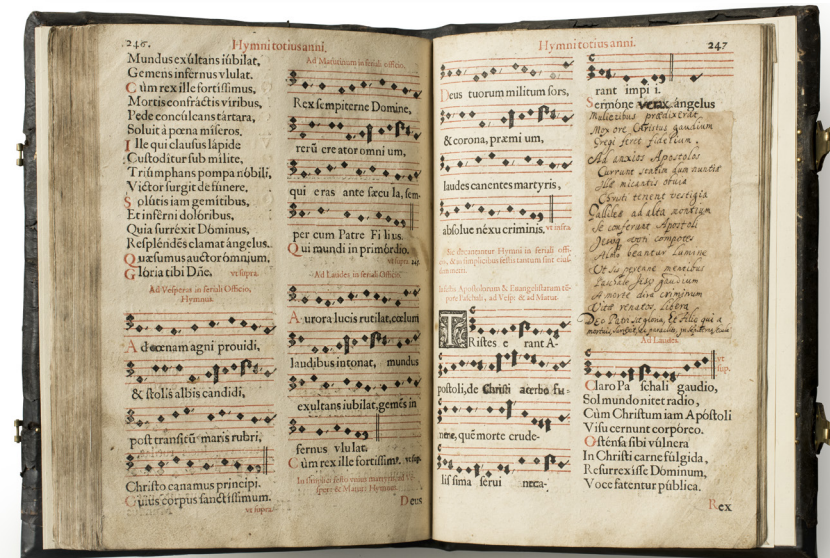 246.
Hymni totius anni.
Mundus exúltans iúbilat,
Gemens infernus vlulat.
Cùm rex ille fortíssimus,
Mortis confráctis víribus,
Pede concúlcans tártara,
Soluit à pœna míseros.
Ille qui clausus lápide
Custoditur sub mílite,
Triúmphans pompa nóbili,
Victor surgit de fúnere.
Solútis iam gemítibus,
Et inférni dolóribus,
Quia surréxit Dóminus,
Resplédēs clamat ángelus.
Quæsumus auctor ómnium.
Glória tibi Dñe. vt supra.
Ad Vesperas in feriali Officio,
Hymnus.
Ad cœnam agni prouidi,
& stolis albis candidi,
post transitū maris rubri,
Christo canamus principi.
Cuius corpus sanctissimum.
vt supra.
Ad Matutinum in feriali officio.
Rex sempiterne Domine,
rerū creator omnium,
qui eras ante sæcula, sem-
per cum Patre Filius.
Qui mundi in primórdio.
Ad Laudes in feriali Officio.
Aurora lucis rutilat, cœlum
laudibus intonat, mundus
exultans iubilat, gemēs in
fernus vlulat.
Cùm rex ille fortíssim9. vt sup.
Deus
Hymni totius anni.
247
Deus tuorum militum sors,
& corona, præmium,
laudes canentes martyris,
absolue néxu criminis. vt infra.
TRistes erant A-
postoli, de Christi acerbo fu-
nere, quē morte crude-
lissima serui
rant impii.
Sermóne verax ángelus
Mulieribus prædixerat,
Mox ore Christus gaudium
Gregi feret fidelium.
Ad anxios Apostolos
Currunt statim dum nuntiæ
Illæ micantis obvia
Christi tenent vestigia
Galilææ ad alta montium
Se conferunt Apostoli
Jesuq
Alma beantur lumine
Ut sis perenne mentibus
Paschale Jesu gaudium
A morte dira criminum
Vitæ renatos libera
Deo Patri sit gloria, Et Filio qui a
Ad Laudes.
Claro Paschali gaudio, vt sup.
Sol mundo nitet radio,
Cùm Christum iam Apóstoli
Visu cernunt corpóreo.
Osténsa sibi vúlnera
In Christi carne fúlgida,
Resurrexisse Dóminum,
Voce fatentur pública.
Rex